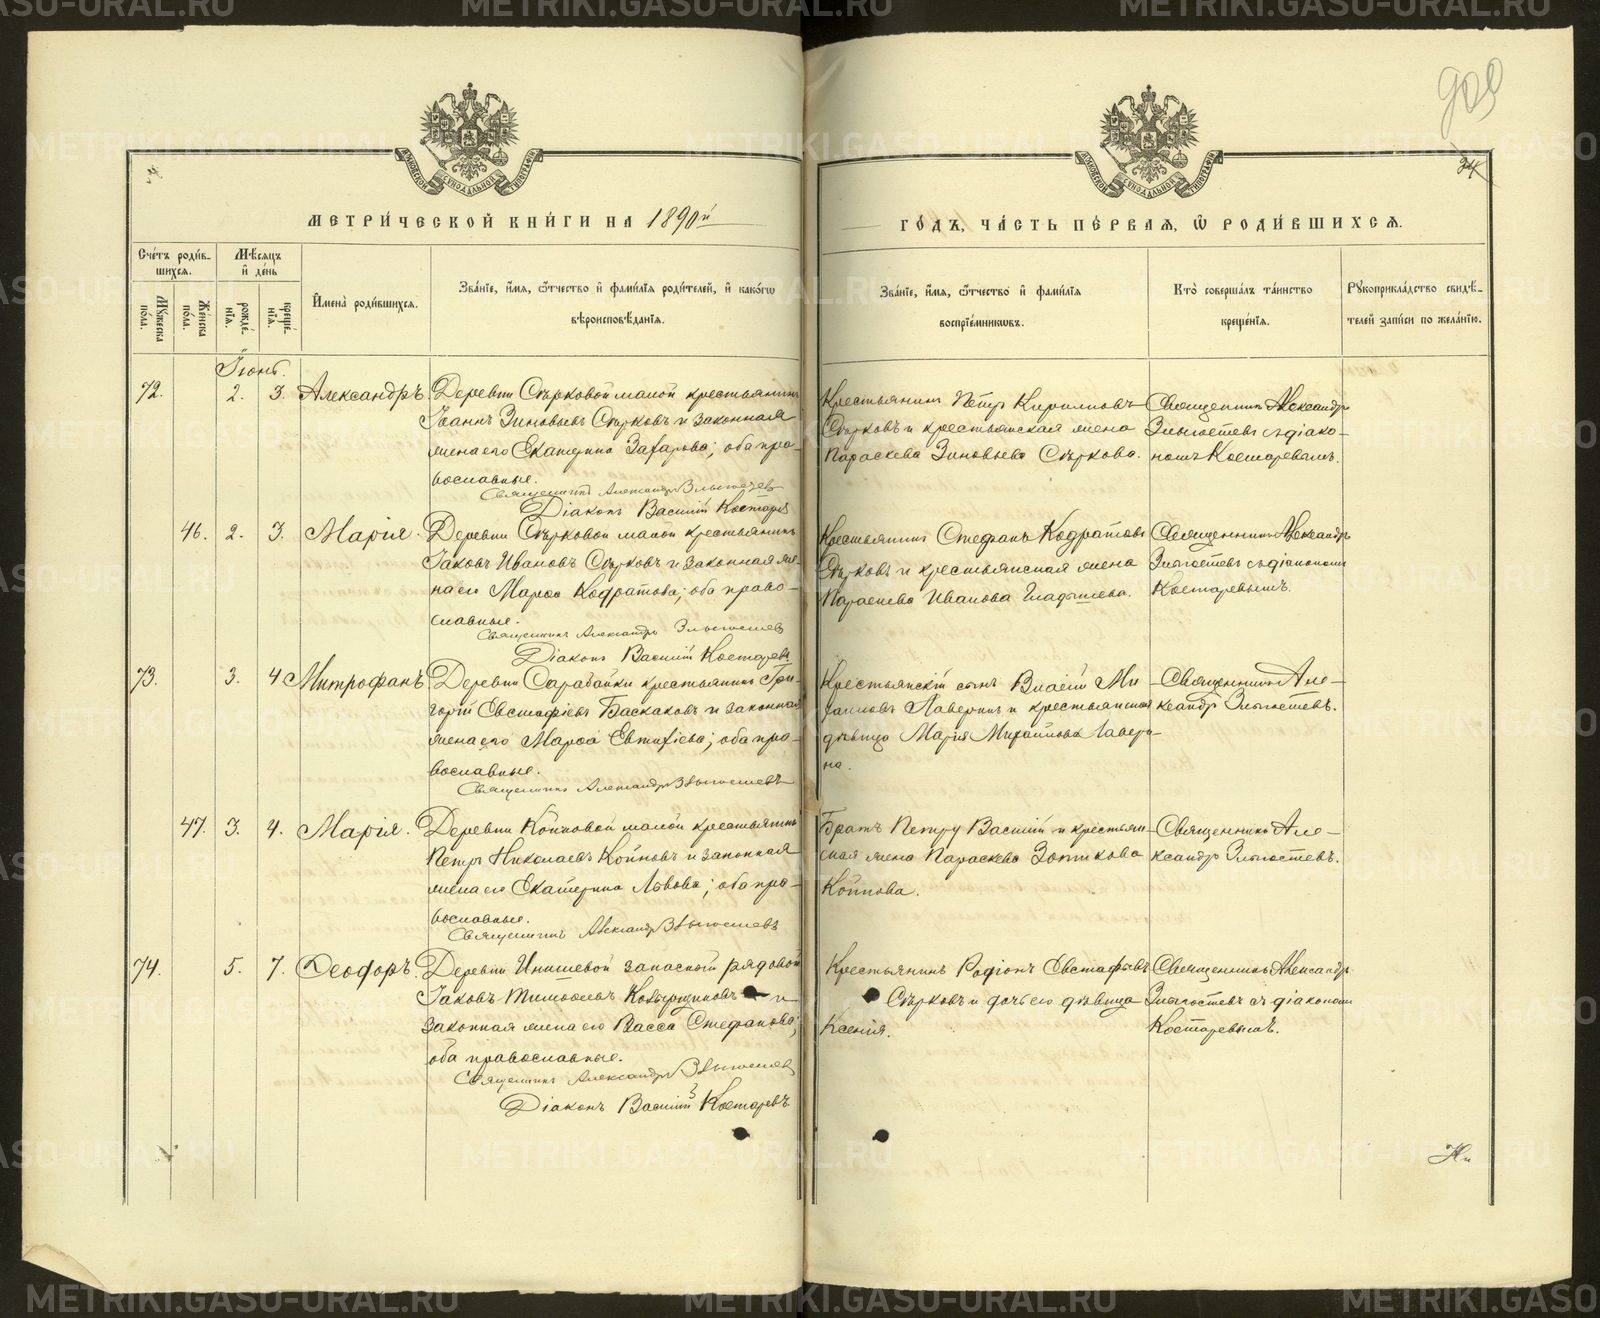 METRIKI.GASO-URAL.RU
909
24
МЕТРИ́ЧЕСКОЙ КНИ́ГИ НА 1890й
ГО́ДЪ, ЧА́СТЬ ПЕ́РВАѦ, Ѡ҆ РОДИ́ВШИХСѦ.
Сче́тъ роди́в-
шихся.
Мѣ́сяцъ
и҆ де́нь
Мꙋ́жеска
по́ла.
Же́нска
по́ла.
рожде́-
нїѧ.
креще́-
нїѧ.
И҆мена̀ роди́вшихся.
Зва́нїе, и҆́мя, ѻ҆́тчество и҆ фами́лїя роди́телей, и҆ како́гѡ
вѣроисповѣ́данїя.
Зва́нїе, и҆́мя, ѻ҆́тчество и҆ фами́лїя
воспрїе́мникѡвъ.
Кто̀ соверша́лъ та́инство
креще́нїя.
Рꙋкоприкла́дство свидѣ́-
телей за́писи по жела́нїю.
Іюнь.
72. 2. 3. Александръ.
Деревни Сѣрковой малой крестьянинъ
Іоаннъ Зиновьевъ Сѣрковъ и законная
жена его Екатерина Захарова; оба пра-
вославные.
Священникъ Александръ
Діаконъ Василій Костаревъ
Крестьянинъ Петръ Кириловъ
Сѣрковъ и крестьянская жена
Параскева Зиновьева Сѣркова.
Священникъ Александръ
съ діако-
номъ Костаревымъ.
46. 2. 3. Марія.
Деревни Сѣрковой малой крестьянинъ
Іаковъ Ивановъ Сѣрковъ и законная же-
на его Марѳа Кодратова; оба право-
славные.
Священникъ Александръ
Діаконъ Василій Костаревъ.
Крестьянинъ Стефанъ Кодратовъ
Сѣрковъ и крестьянская жена
Параскева Иванова Гладышева.
Священникъ Александръ
съ діакономъ
Костаревымъ.
73. 3. 4 Митрофанъ
Деревни Сарабайки крестьянинъ Гри-
горій Евстафіевъ Баскаковъ и законная
жена его Марѳа Евтихіева; оба пра-
вославные.
Священникъ Александръ
Крестьянскій сынъ Власій Ми
хаиловъ Лаверинъ и крестьянская
дѣвица Марія Михайлова Лавери-
на.
Священникъ Але-
ксандръ
47. 3. 4. Марія.
Деревни Койновой малой крестьянинъ
Петръ Николаевъ Койновъ и законная
жена его Екатерина Львова; оба пра-
вославные.
Священникъ Александръ
Братъ Петру Василій и крестьян-
ская жена Параскева Зотикова
Койнова.
Священникъ Але-
ксандръ
74. 5. 7. Ѳеодоръ.
Деревни запасной рядовой
Іаковъ Тимоѳеевъ и
законная жена его Васса Стефанова;
оба православные.
Священникъ Александръ
Діаконъ Василій Костаревъ.
Крестьянинъ Родіонъ Евстафьевъ
Сѣрковъ и дочь его дѣвица
Ксенія.
Священникъ Александръ
съ діакономъ
Костаревымъ.